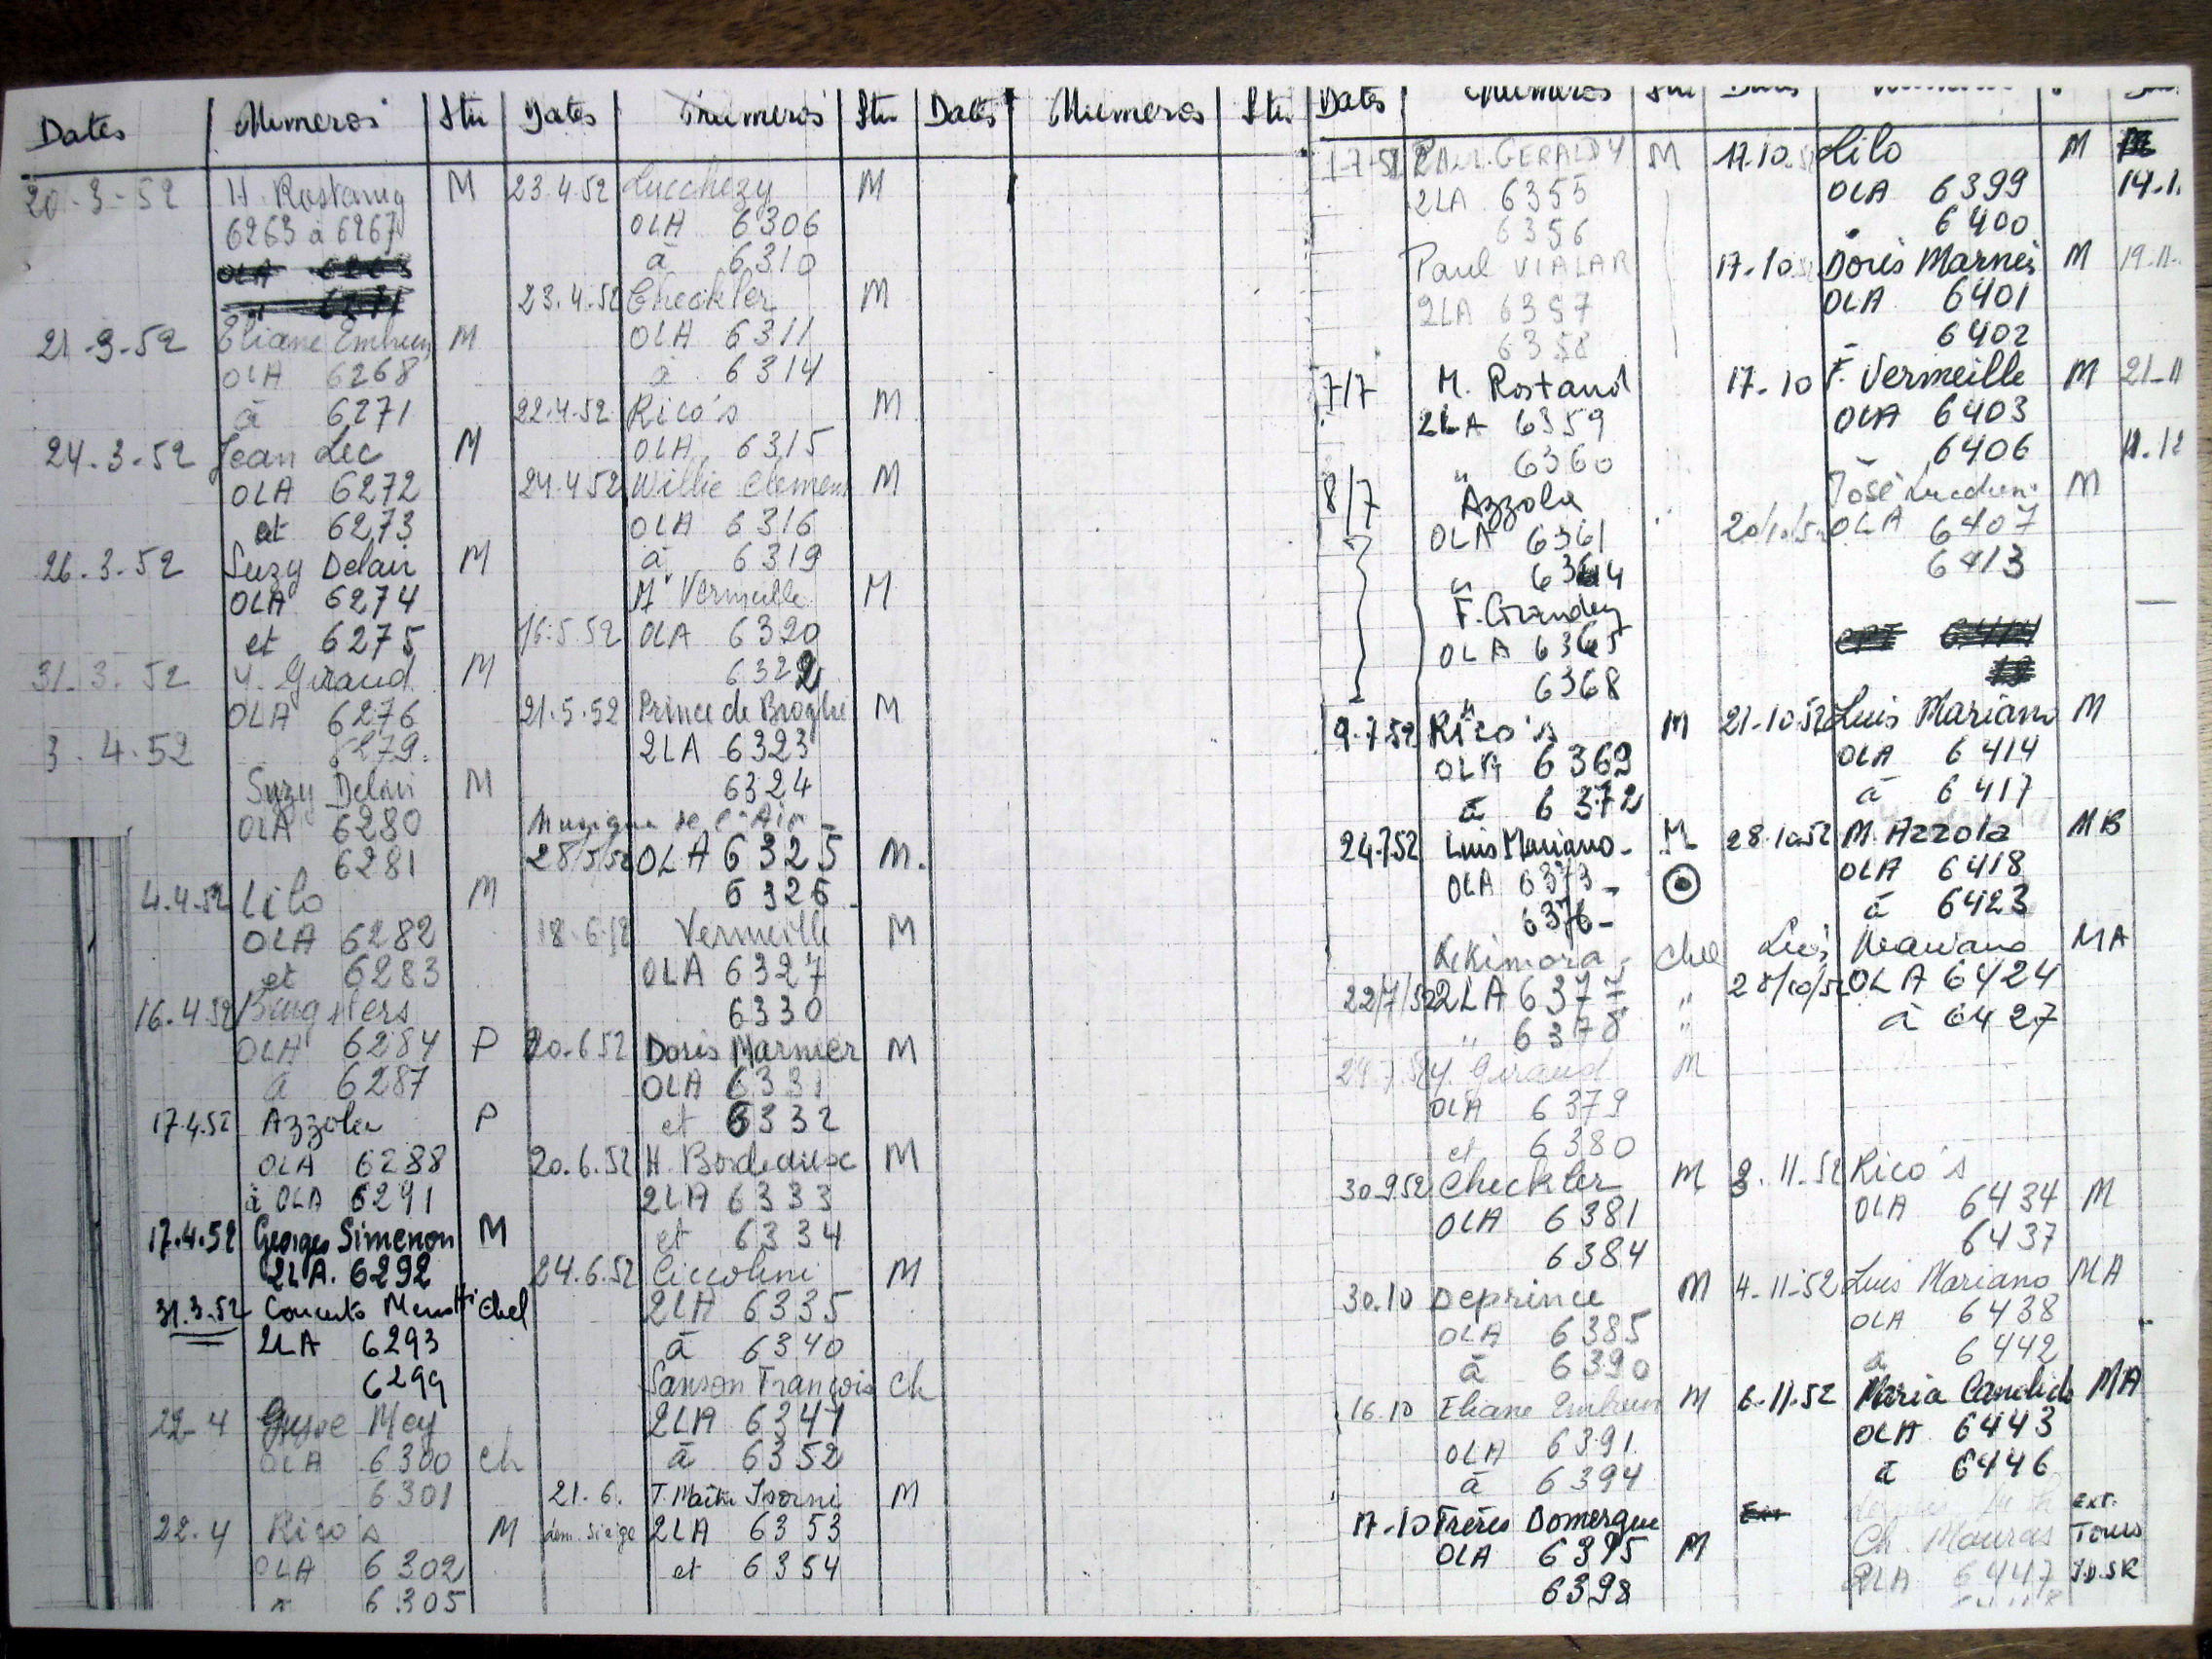 Dates Numeros Stu Dates Numeros Stu Dates Numeros Stu Dates Numeros Stu Dates
20-3-52 H. Rostang M
6263 à 6267
21-3-52 Eliane Embrun M
OLA 6268
à 6271
24.3-52 Jean Lec M
OLA 6272
et 6273
26.3.52 Suzy Delair M
OLA 6274
et 6275
31.3.52 Y. Giraud M
OLA 6276
3.4.52 6279.
Suzy Delair M
OLA 6280
6281
4.4.52 Lilo M
OLA 6282
et 6283
16.4.52
OLA 6284 P
à 6287
17.4.52 Azzola P
OLA 6288
à OLA 6291
17.4.52 Georges Simenon M
2LA. 6292
31.3.52 Concerto Menotti Chel
2LA 6293
6299
22-4 Mey
OLA 6300 Ch
6301
22.4 Rico's M
OLA 6302
à 6305
23.4.52 Lucchezy M
OLA 6306
à 6310
23.4.52 Checkler M
OLA 6311
à 6314
22.4.52 Rico's M
OLA 6315
24.4.52 Willie Clemen M
OLA 6316
à 6319
Vermeille M
16.5.52 OLA 6320
6322
21.5.52 Prince de Broglie M
2LA 6323
6324
Musique de l'Air -
28/5/52 OLA 6325 M.
6326 -
18.6.52 Vermeille M
OLA 6327
6330
20.6.52 Doris Marnier M
OLA 6331
et 6332
20.6.52 H. Bordeaux M
2LA 6333
et 6334
24.6.52 Ciccolini M
2LA 6335
à 6340
Sanson François Ch
2LA 6341
à 6352
21.6. T. Maître Isorni M
dem. siège 2LA 6353
et 6354
1-7-52 PAUL GERALDY M
2LA 6355
6356
Paul VIALAR
2LA 6357
6358
7/7 M. Rostand
2LA 6359
" 6360
8/7 Azzola
OLA 6361
" 6364
F. Grandey
OLA 6365
6368
9.7.52 Rico's M
OLA 6369
à 6372
24.7.52 Luis Mariano - M
OLA 6373 -
6376 -
Kikimora Chel
22/7/52 2LA 6377 "
" 6378 "
Y. Giraud M
OLA 6379
et 6380
30.9.52 Checkler M
OLA 6381
6384
30.10 Deprince M
OLA 6385
à 6390
16.10 Eliane Embrun M
OLA 6391
à 6394
17-10 Frères Domergue
OLA 6395 M
6398
17.10.52 Lilo M
OLA 6399
6400
17.10.52 Doris Marnès M
OLA 6401
6402
17-10 F. Vermeille M
OLA 6403
6406
José Lucchesi M
OLA 6407
6413
21.10.52 Luis Mariano M
OLA 6414
à 6417
28.10.52 M. Azzola MB
OLA 6418
à 6423
Luis Mariano MA
28/10/52 OLA 6424
à 6427
3.11.52 Rico's
OLA 6434 M
6437
4-11-52 Luis Mariano MA
OLA 6438
à 6442
6-11-52 Maria Candido MA
OLA 6443
à 6446
EXT.
Ch. Mauras Tours
2LA 6447
14.1.
19-11-
21-11
11.12